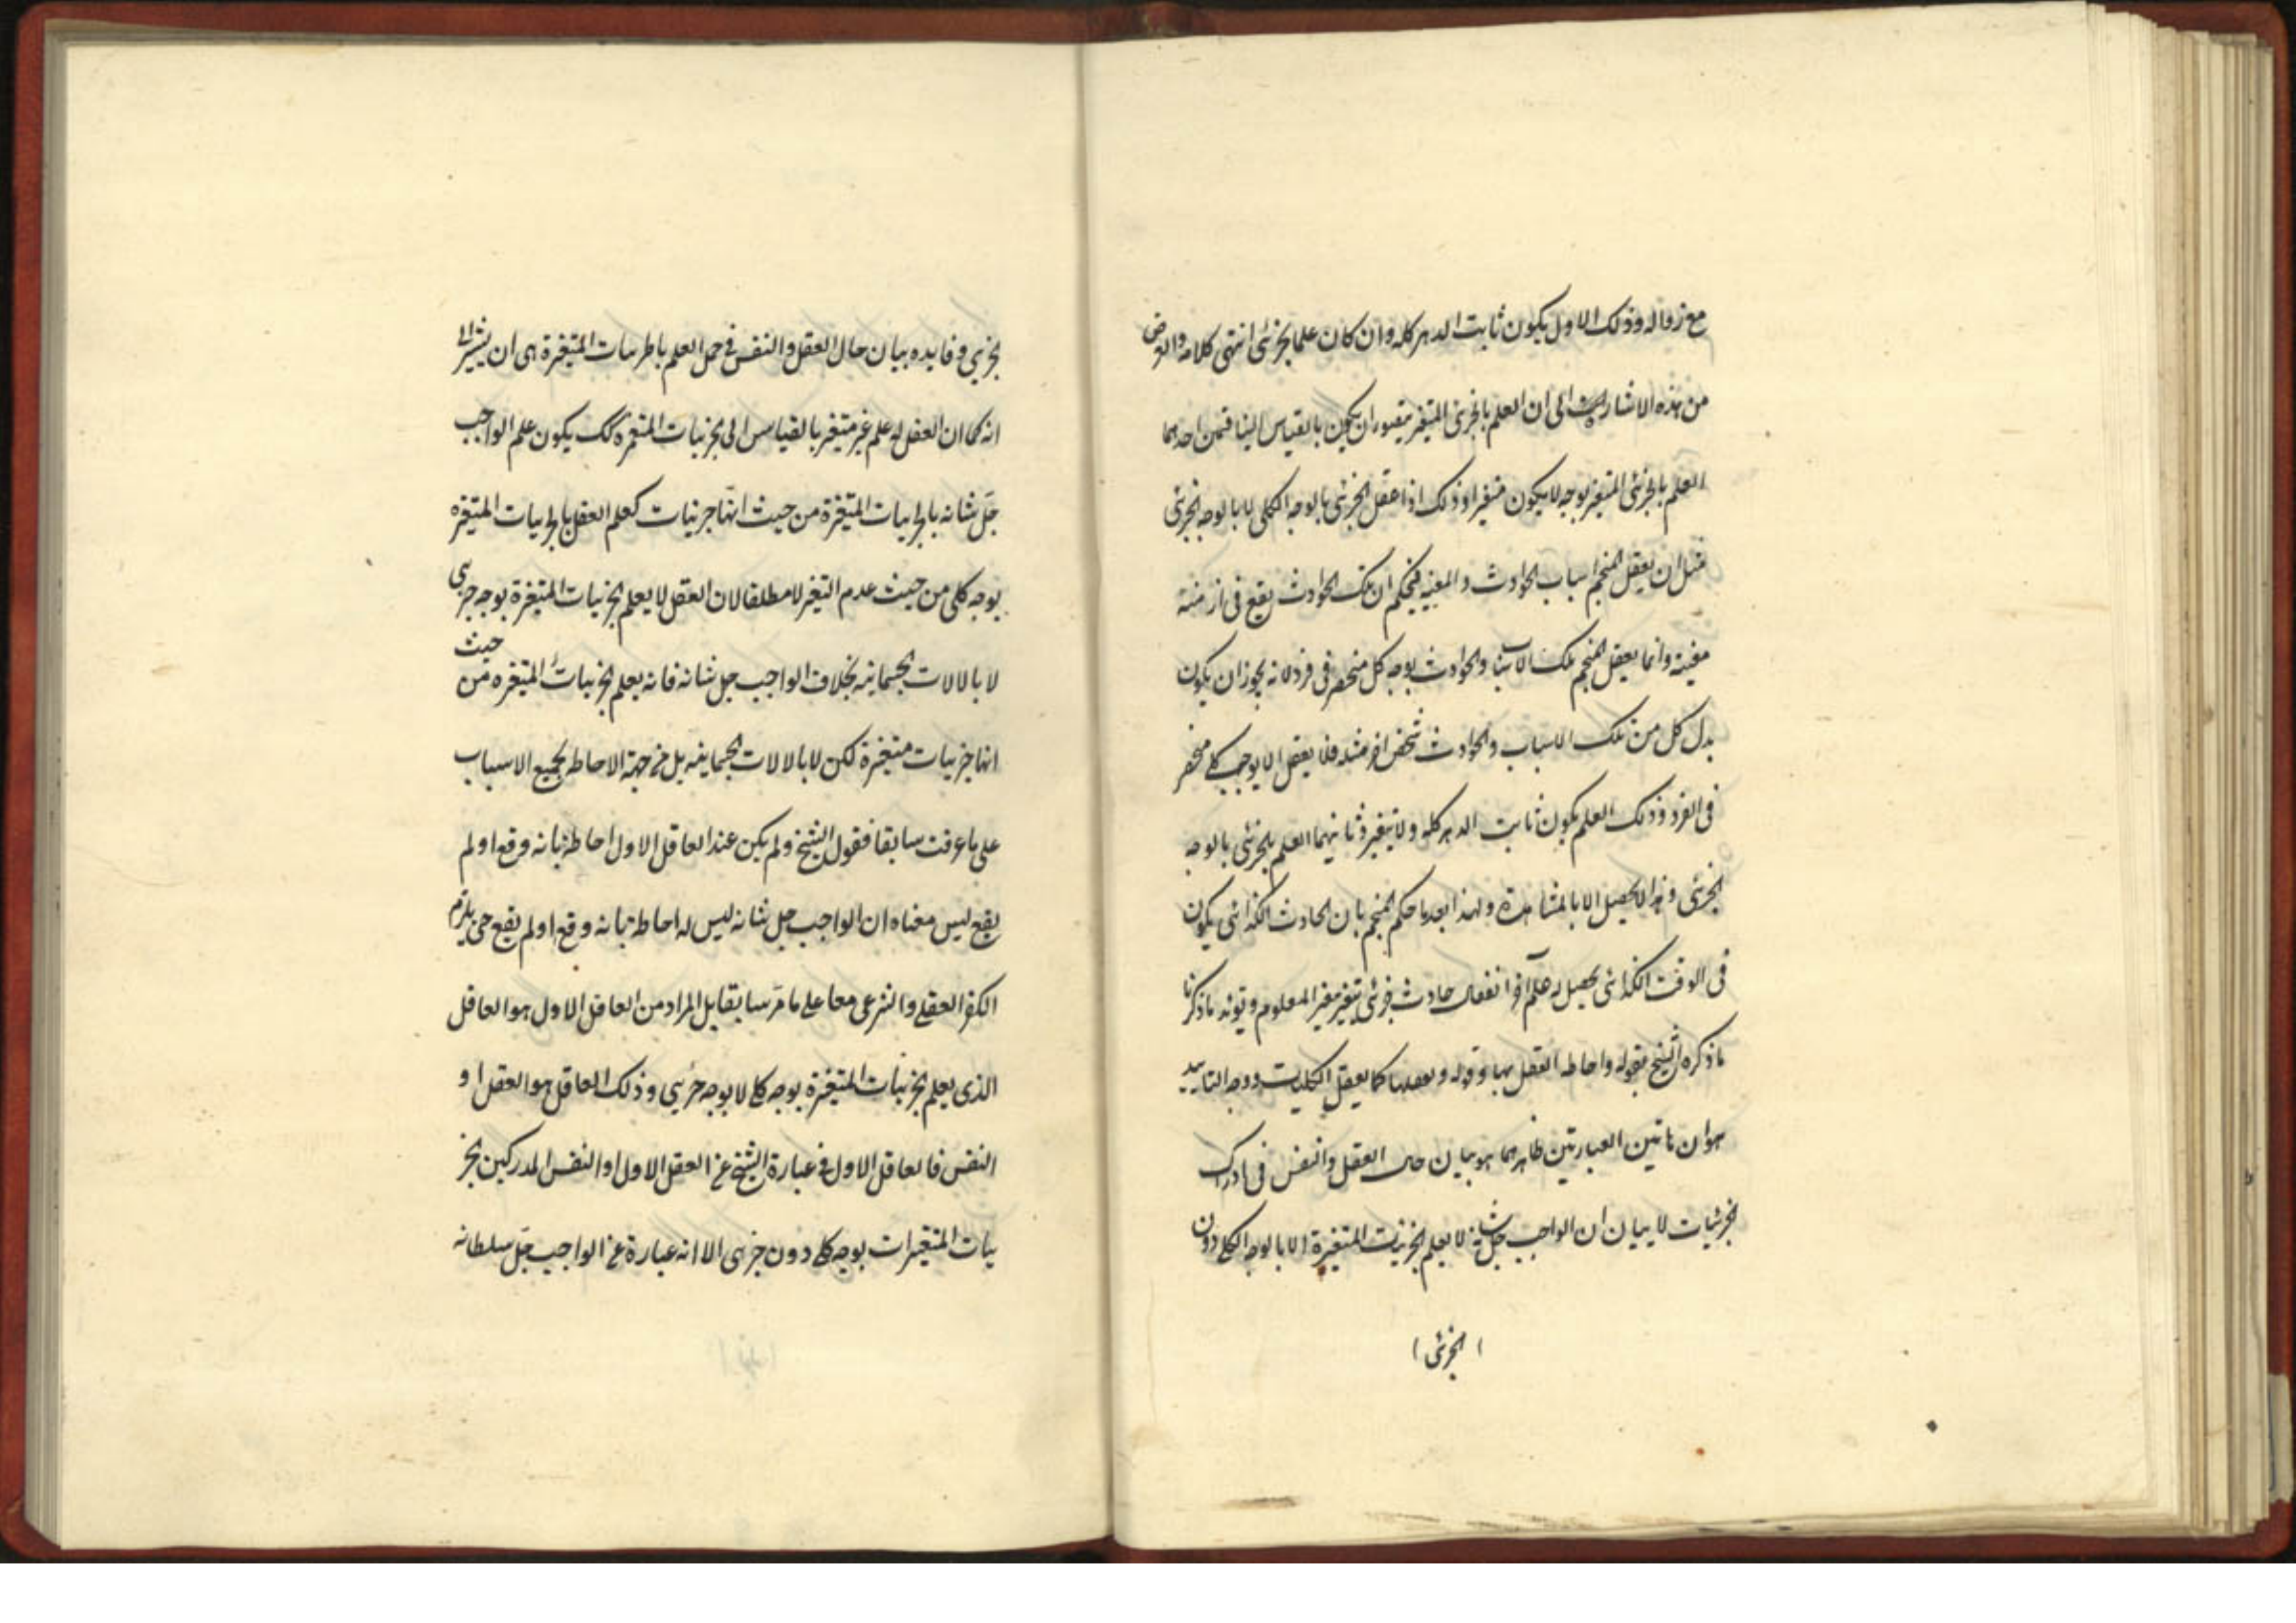 مع زواله وذلك الاول يكون ثابت الدهر كله وان كان علما بجزئی انتهى كلامه والغرض
من هذه الاشارات الى ان العلم بالجزئی المتغير يتصور ان يكون بالقياس الينا قسمين احدهما
العلم بالجزئی المتغير بوجه لا يكون متغيرا وذلك اذا عقل الجزئی بالوجه الكلی لا بالوجه الجزئی
مثل ان يعقل المنجم اسباب الحوادث والمعينه فيحكم ان تلك الحوادث يقع فی ازمنة
معينة وانما يعقل المنجم تلك الاسباب والحوادث بوجه كل منحصر فی فرد لانه يجوز ان يكون
بدل كل من تلك الاسباب والحوادث شخص اخر مثله فلا يعقل الا بوجه كلے منحصر
فی الفرد وذلك العلم يكون ثابت الدهر كله ولا يتغير وثانيهما العلم بالجزئی بالوجه
الجزئی وهذا لا يحصل الا بالمشاهدة ولهذا بعد ما حكم المنجم بان الحادث الكذائی يكون
فی الوقت الكذائی يحصل له علم آخر انفعالی حادث جزئی يتغير بتغير المعلوم ويؤيد ما ذكرنا
ما ذكره الشيخ بقوله واحاطه العقل بها وقوله وتعقلها كما يعقل الكليات ووجه التاييد
هو ان هاتين العبارتين ظاهرهما هو بيان حال العقل والنفس فی ادراك
الجزئيات لا بيان ان الواجب جل شانه لا يعلم الجزئيات المتغيرة الا بالوجه الكلے دون
الجزئی
بجزیی وفايده بيان حال العقل والنفس فی حمل العلم بالجزييات المتغيرة هی ان يشير الى
انه كما ان العقل له علم غير متغير بالقياس الى الجزييات المتغيرة كك يكون علم الواجب
جلّ شانه بالجزييات المتغيرة من حيث انهّا جزييات كعلم العقل بالجزييات المتغيره
بوجه كلی من حيث عدم التغير لا مطلقا لان العقل لا يعلم الجزييات المتغيرة بوجه جزیی
لا بالالات الجسمانيه بخلاف الواجب جل شانه فانه يعلم الجزييات المتغيره من حيث
انها جزييات متغيرة لكن لا بالالات الجسمانيه بل من جهة الاحاطه بجميع الاسباب
على ما عرفت سابقا فقول الشيخ ولم يكن عند العاقل الاول احاطه بانه وقع او لم
يقع ليس معناه ان الواجب جل شانه ليس له احاطه بانه وقع او لم يقع حتی يلزم
الكفر العقلے والشرعی معا علے ما مرّ سابقا بل المراد من العاقل الاول هو العاقل
الذی يعلم الجزييات المتغيرة بوجه كلے لا بوجه جزیی وذلك العاقل هو العقل او
النفس فالعاقل الاول فی عبارة الشيخ عن العقل الاول او النفس المدركين بجز
ييات المتغيرات بوجه كلے دون جزیی الا انه عبارة عن الواجب جلّ سلطانه